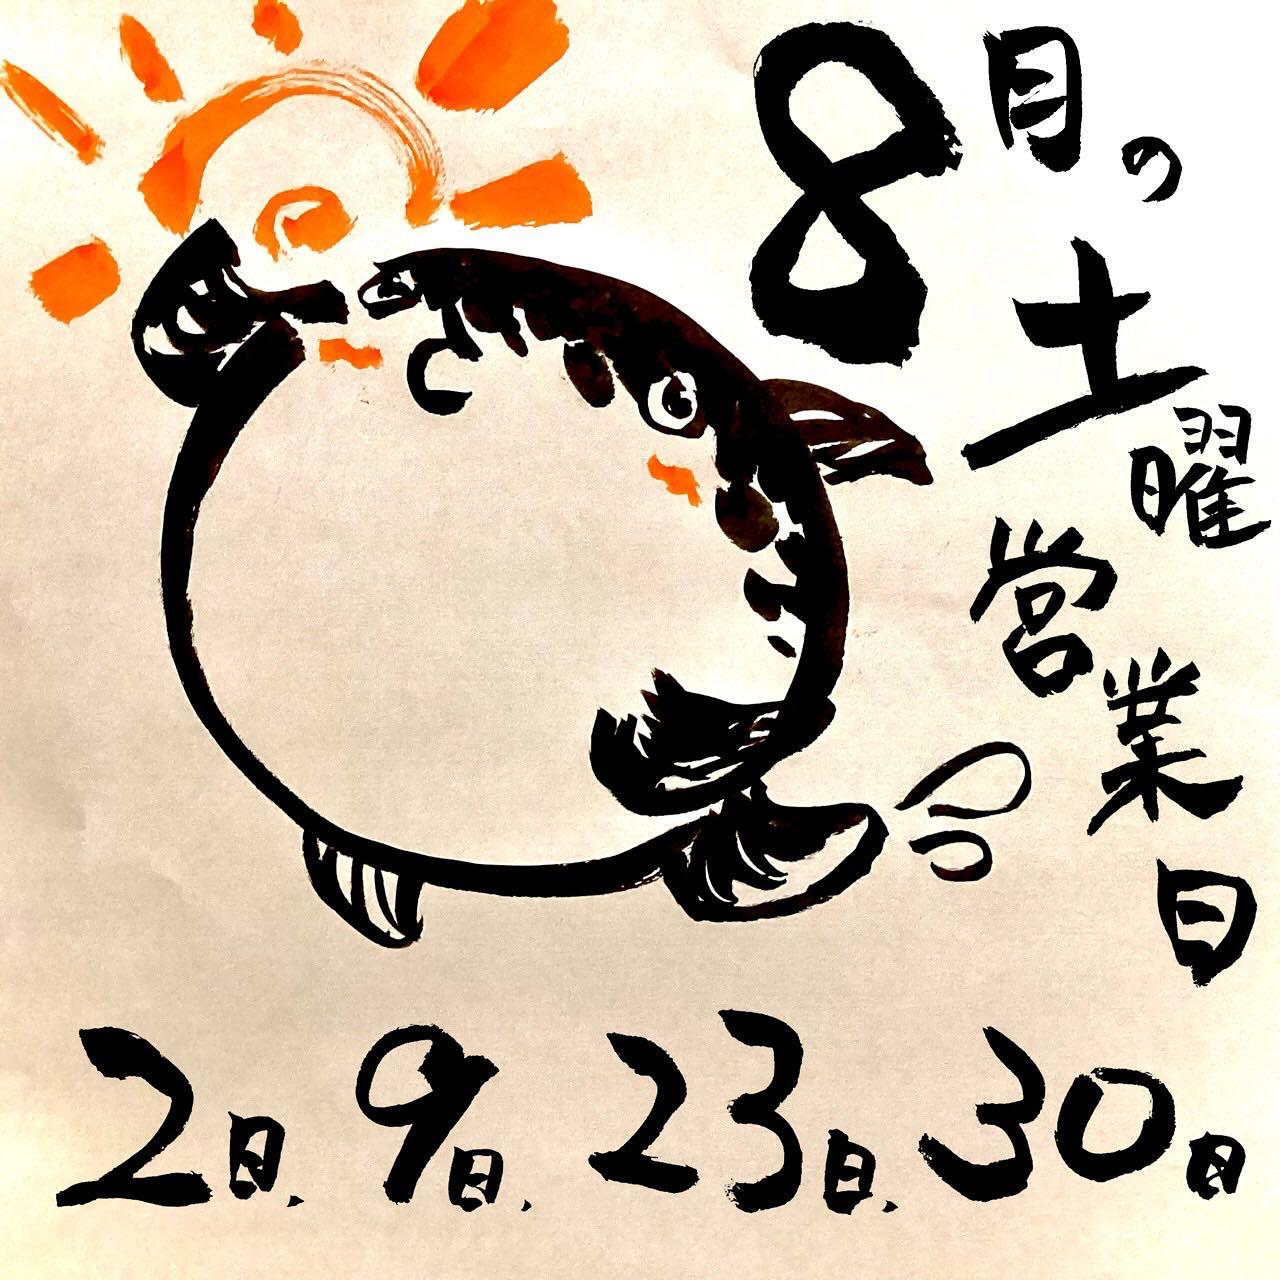 8月の土曜営業日
2日、9日、23日、30日